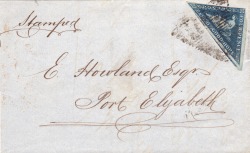 Stamped
E. Howland Esqr.
Port Elizabeth